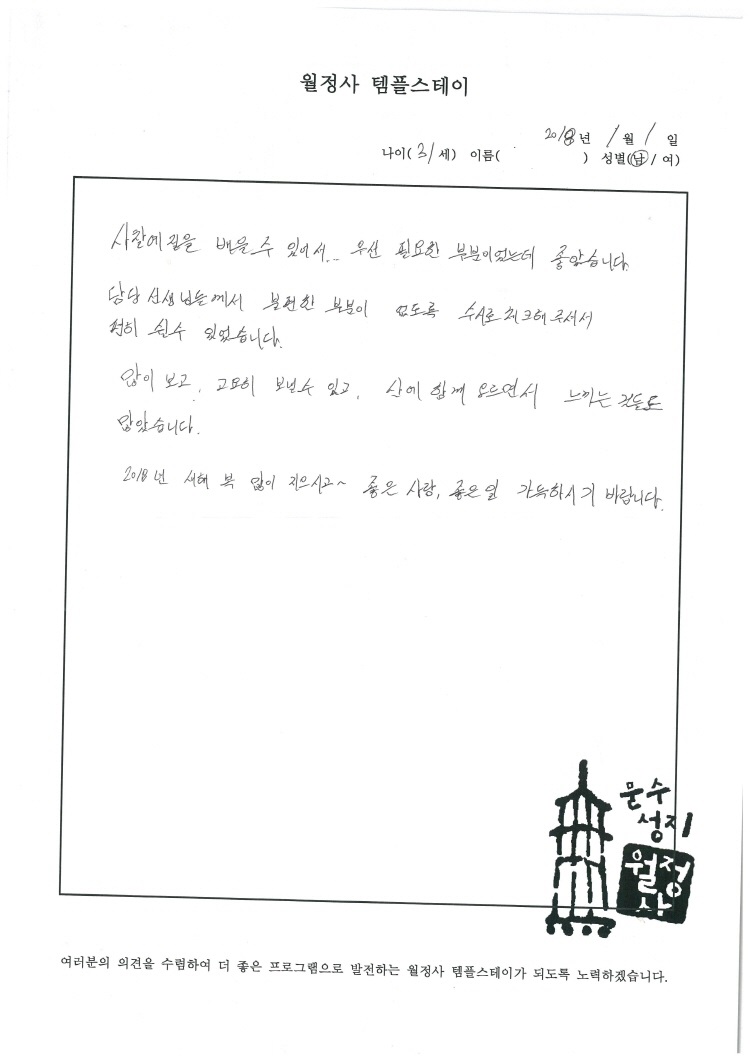 월정사 템플스테이
2018년 1월 1일
나이(31세) 이름( ) 성별(남/여)
사찰예절을 배울 수 있어서... 우선 필요한 부분이었는데 좋았습니다.
담당 선생님들께서 불편한 부분이 없도록 수시로 체크해 주셔서
편히 쉴수 있었습니다.
많이 보고, 고요히 보낼수 있고, 산에 함께 오르면서 느끼는 것들도
많았습니다.
2018년 새해 복 많이 지으시고~ 좋은 사람, 좋은일 가득하시기 바랍니다.
문수
성지
월정
사
여러분의 의견을 수렴하여 더 좋은 프로그램으로 발전하는 월정사 템플스테이가 되도록 노력하겠습니다.